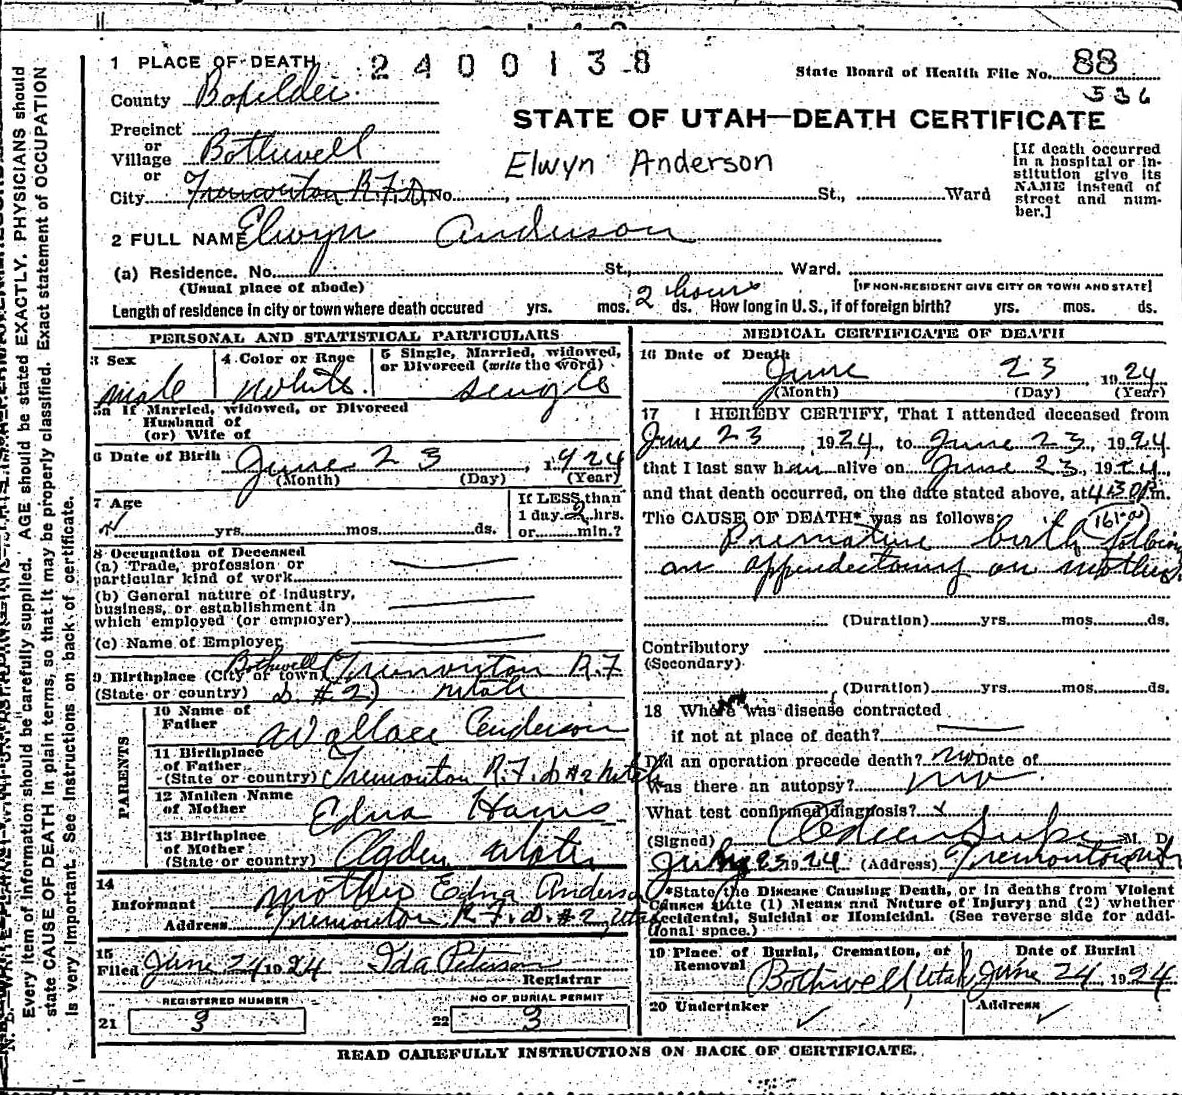 1 PLACE OF DEATH 2400138 State Board of Health File No. 88
County Boxelder 536
STATE OF UTAH—DEATH CERTIFICATE
Precinct
or
Village Bothwell
or
City Tremonton R.F.D. No. St., Ward
Elwyn Anderson
[If death occurred
in a hospital or in-
stitution give its
NAME instead of
street and num-
ber.]
2 FULL NAME Elwyn Anderson
(a) Residence. No. St., Ward.
(Usual place of abode) [IF NON-RESIDENT GIVE CITY OR TOWN AND STATE]
Length of residence in city or town where death occured yrs. mos. 2 hours ds. How long in U.S., if of foreign birth? yrs. mos. ds.
PERSONAL AND STATISTICAL PARTICULARS
3 Sex 4 Color or Race 5 Single, Married, widowed,
or Divorced (write the word)
male white single
5a If Married, widowed, or Divorced
Husband of
(or) Wife of
6 Date of Birth June 23, 1924
(Month) (Day) (Year)
7 Age If LESS than
1 day 2 hrs.
yrs. mos. ds. or min.?
8 Occupation of Deceased
(a) Trade, profession or
particular kind of work
(b) General nature of industry,
business, or establishment in
which employed (or employer)
(c) Name of Employer
9 Birthplace (City or town) Bothwell (Tremonton R.F.
(State or country) D. #2) Utah
PARENTS
10 Name of
Father Wallace Anderson
11 Birthplace
of Father
(State or country) Tremonton R.F.D #2 Utah
12 Maiden Name
of Mother Edna Harris
13 Birthplace
of Mother
(State or country) Ogden Utah
14
Informant mother Edna Anderson
Address Tremonton R.F.D. #2, Utah
15
Filed June 24 1924 Ida Peterson
Registrar
REGISTERED NUMBER NO OF BURIAL PERMIT
21 3 22 3
MEDICAL CERTIFICATE OF DEATH
16 Date of Death
June 23 1924
(Month) (Day) (Year)
17 I HEREBY CERTIFY, That I attended deceased from
June 23, 1924, to June 23, 1924
that I last saw him alive on June 23, 1924,
and that death occurred, on the date stated above, at 4:30 P.m.
The CAUSE OF DEATH* was as follows:
Premature birth following
an appendectomy on mother
(Duration) yrs. mos. ds.
Contributory
(Secondary)
(Duration) yrs. mos. ds.
18 Where was disease contracted
if not at place of death?
Did an operation precede death? no Date of
Was there an autopsy? no
What test confirmed diagnosis? x
(Signed) M. D.
23 1924 (Address) Tremonton Utah
*State the Disease Causing Death, or in deaths from Violent
Causes state (1) Means and Nature of Injury; and (2) whether
Accidental, Suicidal or Homicidal. (See reverse side for addi-
tional space.)
19 Place of Burial, Cremation, or Date of Burial
Removal Bothwell, Utah June 24, 1924
20 Undertaker ✓ Address ✓
READ CAREFULLY INSTRUCTIONS ON BACK OF CERTIFICATE.
Every item of information should be carefully supplied. AGE should be stated EXACTLY. PHYSICIANS should
state CAUSE OF DEATH in plain terms, so that it may be properly classified. Exact statement of OCCUPATION
is very important. See instructions on back of certificate.